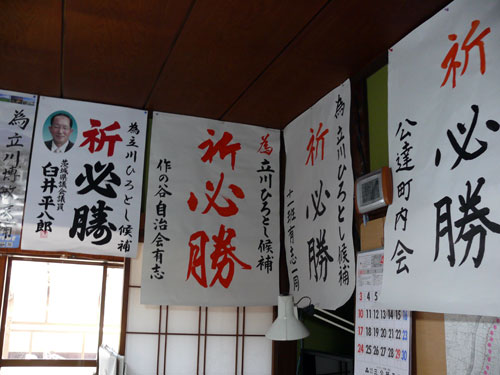 為立川博敏
祈必勝
為立川ひろとし候補
茨城県議会議員
白井平八郎
祈必勝
為立川ひろとし候補
作の谷自治会有志
祈必勝
為立川ひろとし候補
十一班有志一同
祈必勝
公達町内会
3
10 11 12 13 14 15 16
17 18 19 20 21 22 23
24 25 26 27 28 29 30